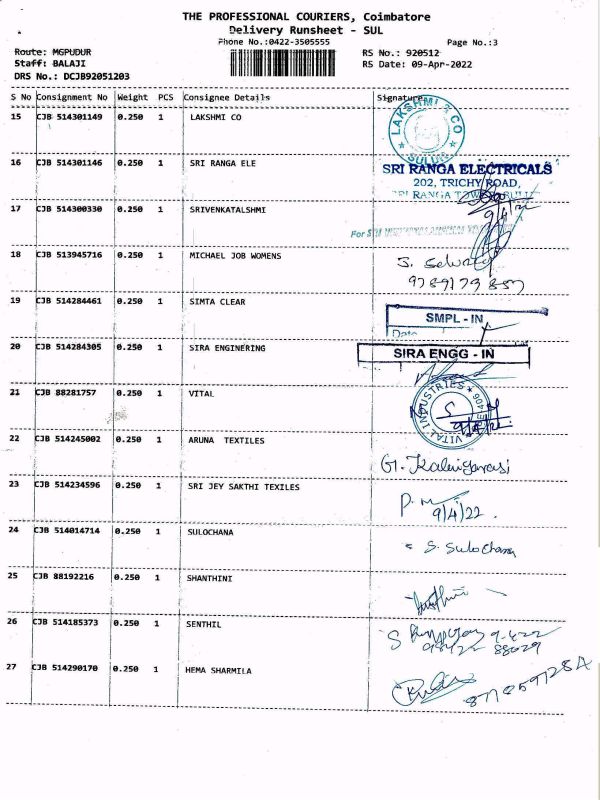 THE PROFESSIONAL COURIERS, Coimbatore
Delivery Runsheet - SUL
Phone No.:0422-3505555
Page No.:3
Route: MGPUDUR
RS No.: 920512
Staff: BALAJI
RS Date: 09-Apr-2022
DRS No.: DCJB92051203
S No Consignment No Weight PCS Consignee Details Signature
15 CJB 514301149 0.250 1 LAKSHMI CO
LAKSHMI & CO
SULUR
16 CJB 514301146 0.250 1 SRI RANGA ELE
SRI RANGA ELECTRICALS
202, TRICHY ROAD,
SRI RANGA TOWER
17 CJB 514300330 0.250 1 SRIVENKATALSHMI
9/4/22
For SRI
18 CJB 513945716 0.250 1 MICHAEL JOB WOMENS
S. Selvaraj
19 CJB 514284461 0.250 1 SIMTA CLEAR
SMPL - IN
Date
20 CJB 514284305 0.250 1 SIRA ENGINERING
SIRA ENGG - IN
21 CJB 88281757 0.250 1 VITAL
VITAL INDUSTRIES
9/4/22
22 CJB 514245002 0.250 1 ARUNA TEXTILES
23 CJB 514234596 0.250 1 SRI JEY SAKTHI TEXILES
9/4/22.
24 CJB 514014714 0.250 1 SULOCHANA
S. Sulochana
25 CJB 88192216 0.250 1 SHANTHINI
26 CJB 514185373 0.250 1 SENTHIL
88029
27 CJB 514290170 0.250 1 HEMA SHARMILA